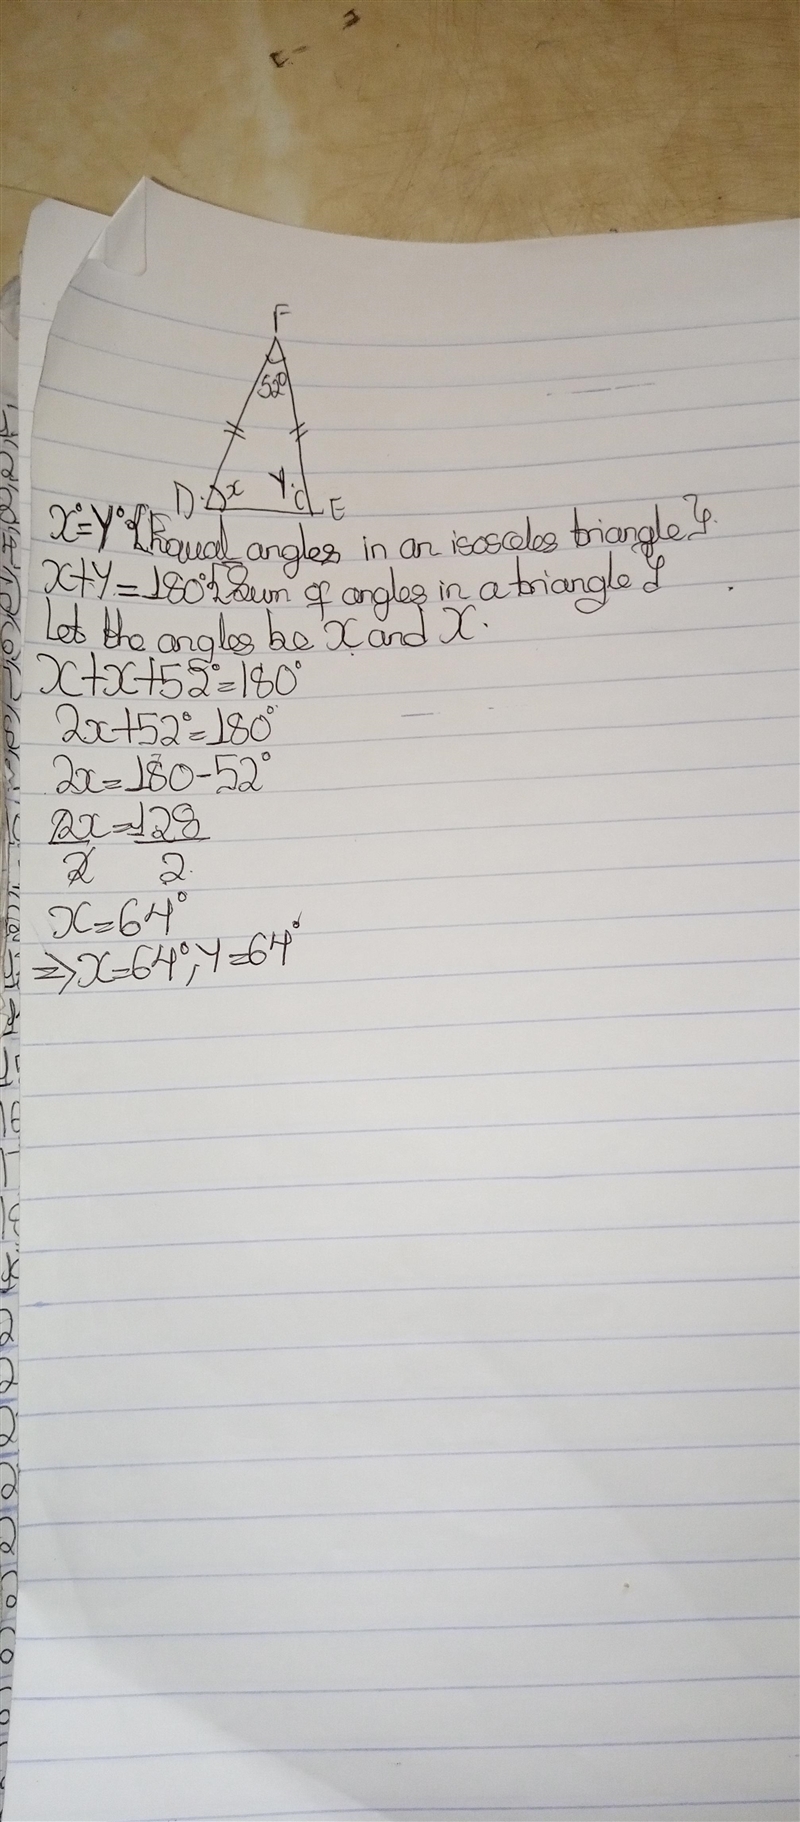 F
52°
D x y E
x°=y° {Equal angles in an isosceles triangle}.
x+y=180° {Sum of angles in a triangle}
Let the angles be x and x.
x+x+52°=180°
2x+52°=180°
2x=180-52°
2x=128
2 2
x=64°
⇒x=64°, y=64°